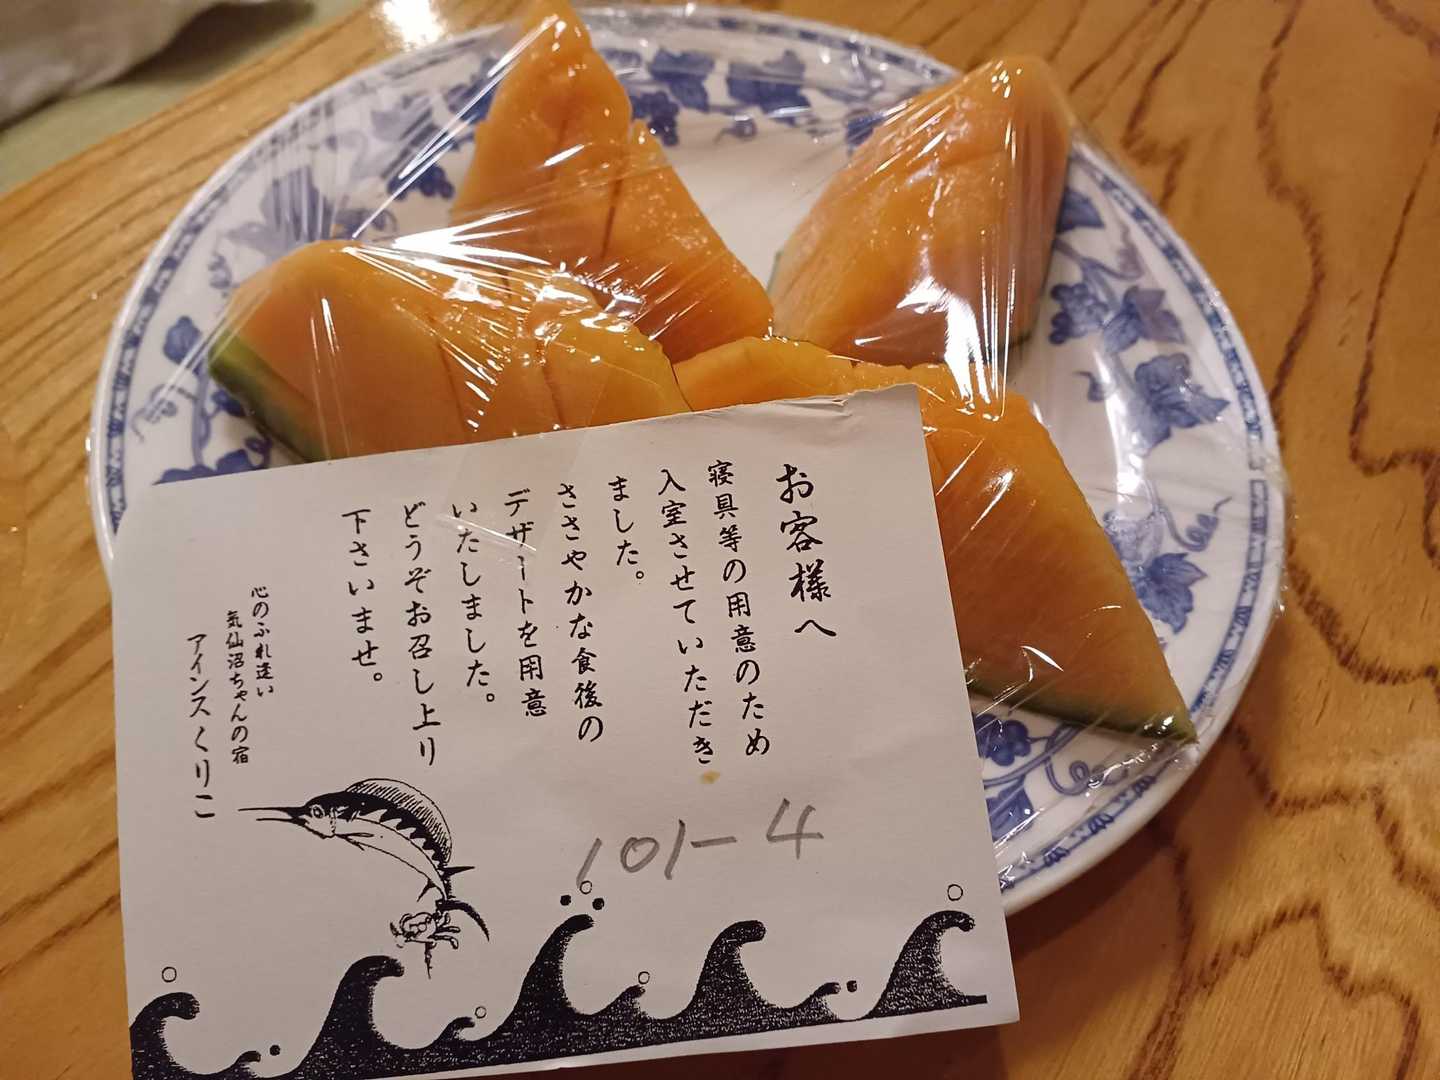 お客様へ
寝具等の用意のため
入室させていただき
ました。
ささやかな食後の
デザートを用意
いたしました。
どうぞお召し上り
下さいませ。
心のふれ逢い
気仙沼ちゃんの宿
アインスくりこ
101-4